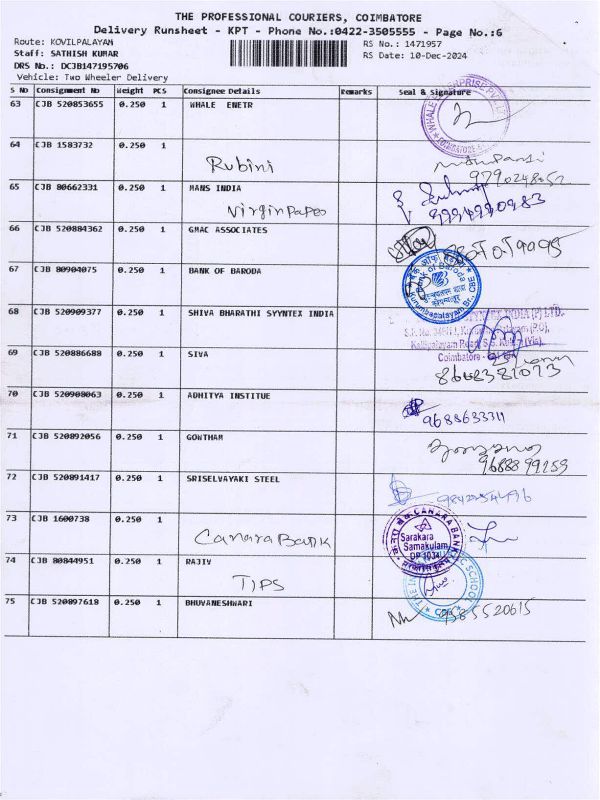 THE PROFESSIONAL COURIERS, COIMBATORE
Delivery Runsheet - KPT - Phone No.:0422-3505555 - Page No.:6
Route: KOVILPALAYAM
RS No.: 1471957
Staff: SATHISH KUMAR
RS Date: 10-Dec-2024
DRS No.: DCJB147195706
Vehicle: Two Wheeler Delivery
S No Consignment No Weight PCS Consignee Details Remarks Seal & Signature
63 CJB 520853655 0.250 1 WHALE ENETR
64 CJB 1583732 0.250 1
Rubini
9790248052
65 CJB 80662331 0.250 1 MANS INDIA
Virgin Papes
9994990983
66 CJB 520884362 0.250 1 GMAC ASSOCIATES
67 CJB 80904075 0.250 1 BANK OF BARODA
Bank of Baroda
68 CJB 520909377 0.250 1 SHIVA BHARATHI SYYNTEX INDIA
INDIA (P) LTD.
Coimbatore -
69 CJB 520886688 0.250 1 SIVA
70 CJB 520908063 0.250 1 ADHITYA INSTITUE
9688633311
71 CJB 520892056 0.250 1 GONTHAM
9688899259
72 CJB 520891417 0.250 1 SRISELVAYAKI STEEL
73 CJB 1600738 0.250 1
Canara Bank
CANARA BANK
Sarakara
Samakulam
74 CJB 80844951 0.250 1 RAJIV
TIPS
SCHOOL
75 CJB 520897618 0.250 1 BHUVANESHWARI
9585520615